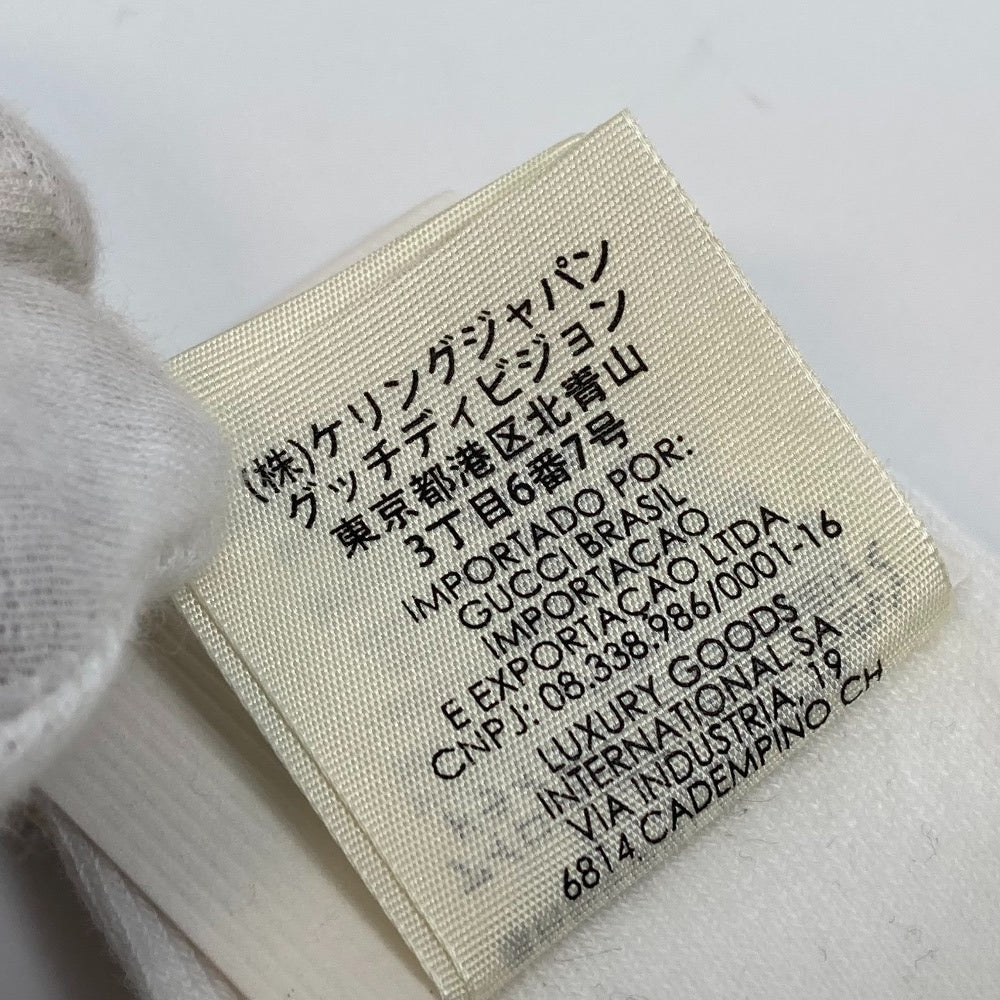 (株)ケリングジャパン
グッチディビジョン
東京都港区北青山
3丁目6番7号
IMPORTADO POR:
GUCCI BRASIL
IMPORTACAO
E EXPORTACAO LTDA
CNPJ: 08.338.986/0001-16
LUXURY GOODS
INTERNATIONAL SA
VIA INDUSTRIA, 19
6814, CADEMPINO CH